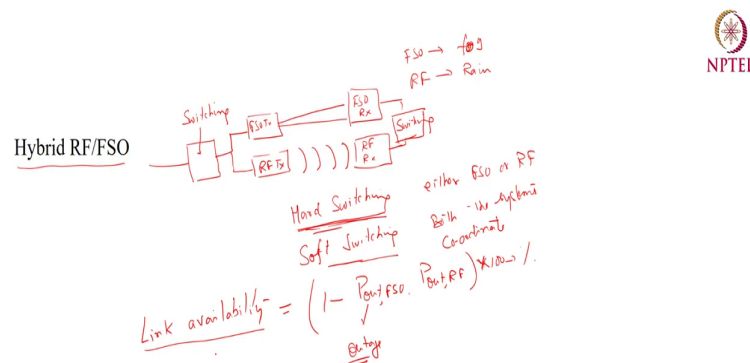 NPTEL
FSO → fog
RF → Rain
Switching
FSO Tx
FSO Rx
Switching
Hybrid RF/FSO
RF Tx
RF Rx
Hard Switching either FSO or RF
Soft Switching Both the systems
Coordinate
Link availability = (1 - Pout,FSO . Pout,RF) * 100 → %.
outage